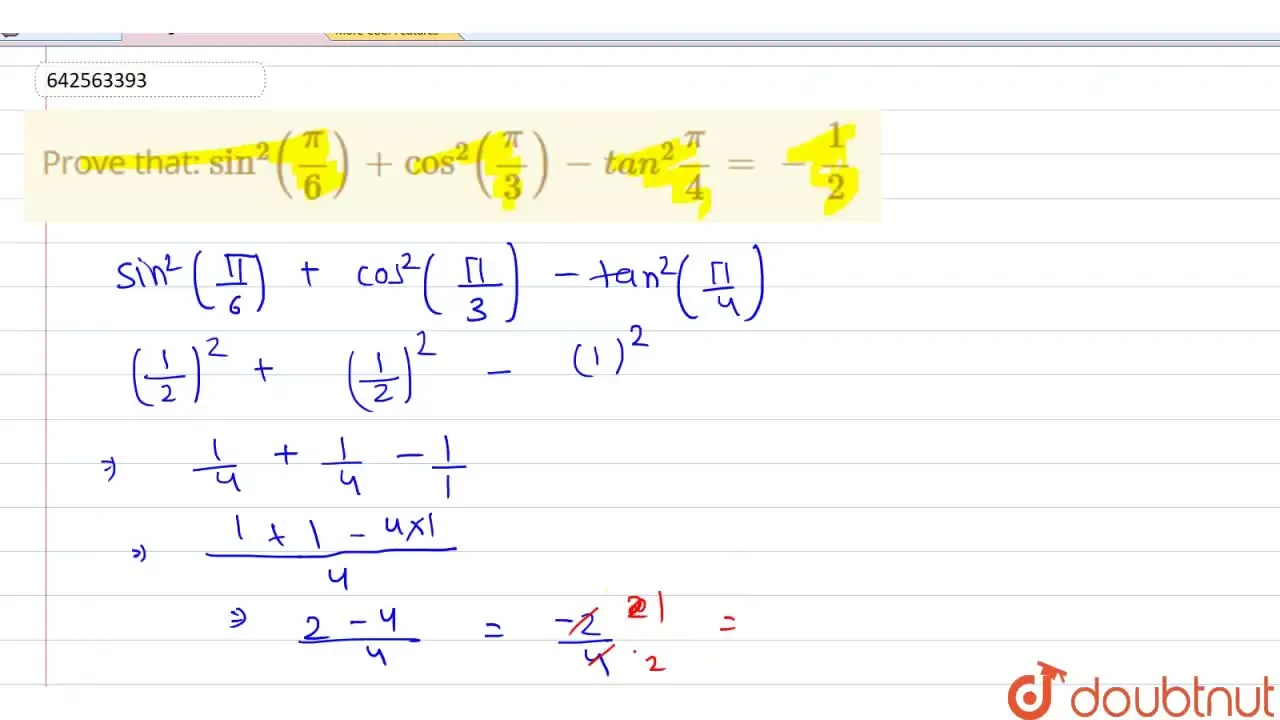 More Cool Features
642563393
Prove that: sin²(π/6) + cos²(π/3) − tan² π/4 = − 1/2
sin² (π/6) + cos² (π/3) − tan² (π/4)
(1/2)² + (1/2)² − (1)²
⇒ 1/4 + 1/4 − 1/1
⇒ (1 + 1 − 4×1)/4
⇒ (2 − 4)/4 = −2/4 1/2 =
doubtnut